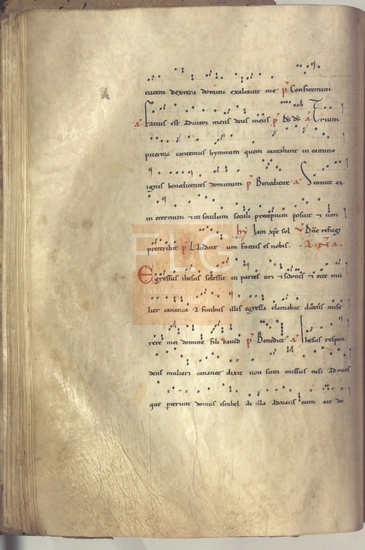 tutem dextera domini exaltavit me p̄ Confitemini
a Factus est adiutor meus deus meus p̄ ds ds a Trium
puerorum cantemus hymnum quem cantabant in camino
ignis benedicentes dominum p̄ Benedicite a Statuit ea
in eternum & in seculum seculi preceptum posuit & non
preteribit p̄ Laudate hy Iam xpe sol v Dne refugi
um factus es nobis
Egressus ihesus secessit in partes tyri & sidonis & ecce mu
lier cananea a finibus illis egressa clamabat dicens mise
rere mei domine fili david p̄ Benedict a Ihesus respon
dens mulieri cananee dixit non sum missus nisi ad oves
que perierunt domus israhel at illa adoravit eum